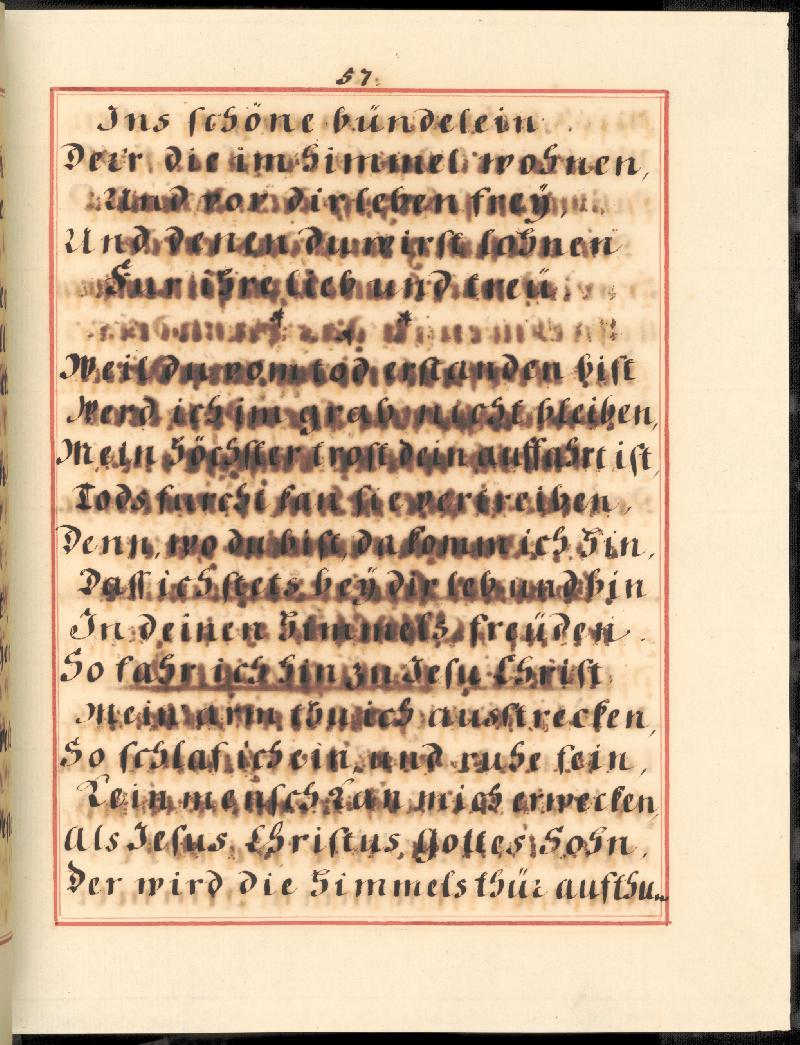 57.
Ins schöne bündelein
Derr die im himmel wohnen,
Und vor dir leben frey,
Und denen du wirst lohnen
Für ihre lieb und treü
* * *
Weil du vom tod erstanden bist
Werd ich im grab nicht bleiben,
Mein höchster trost dein auffahrt ist,
Tods furcht kan sie vertreiben,
Denn, wo du bist, da komm ich hin,
Dass ich stets bey dir leb und bin
In deinen himmels freüden.
So fahr ich hin zu Jesu Christ
Mein arm thu ich ausstrecken,
So schlaf ich ein, und ruhe fein,
Kein mensch kan mich erwecken,
Als Jesus Christus, Gottes Sohn,
Der wird die himmels thür aufthun